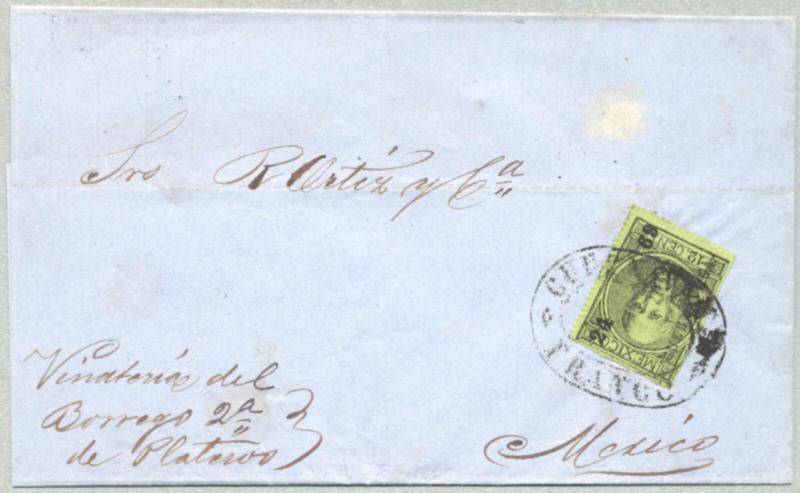 Sres R Ortiz y Cª
Vinatería del
Borrego 2ª
de Plateros
Mexico
69
12. CEN
24
MEXICO
FRANCO